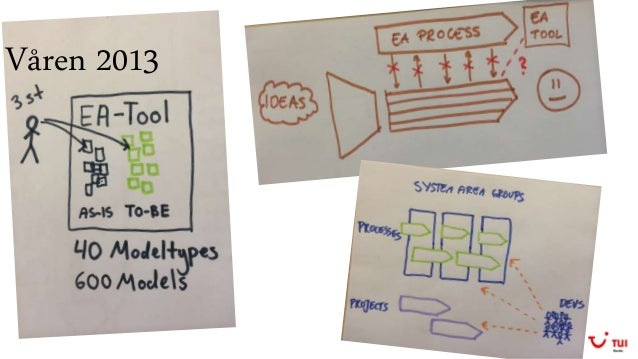 Våren 2013
3 st
EA-Tool
AS-IS TO-BE
40 Modeltypes
600 Models
EA PROCESS
EA
TOOL
?
IDEAS
SYSTEM AREA GROUPS
PROCESSES
PROJECTS
DEVS
TUI